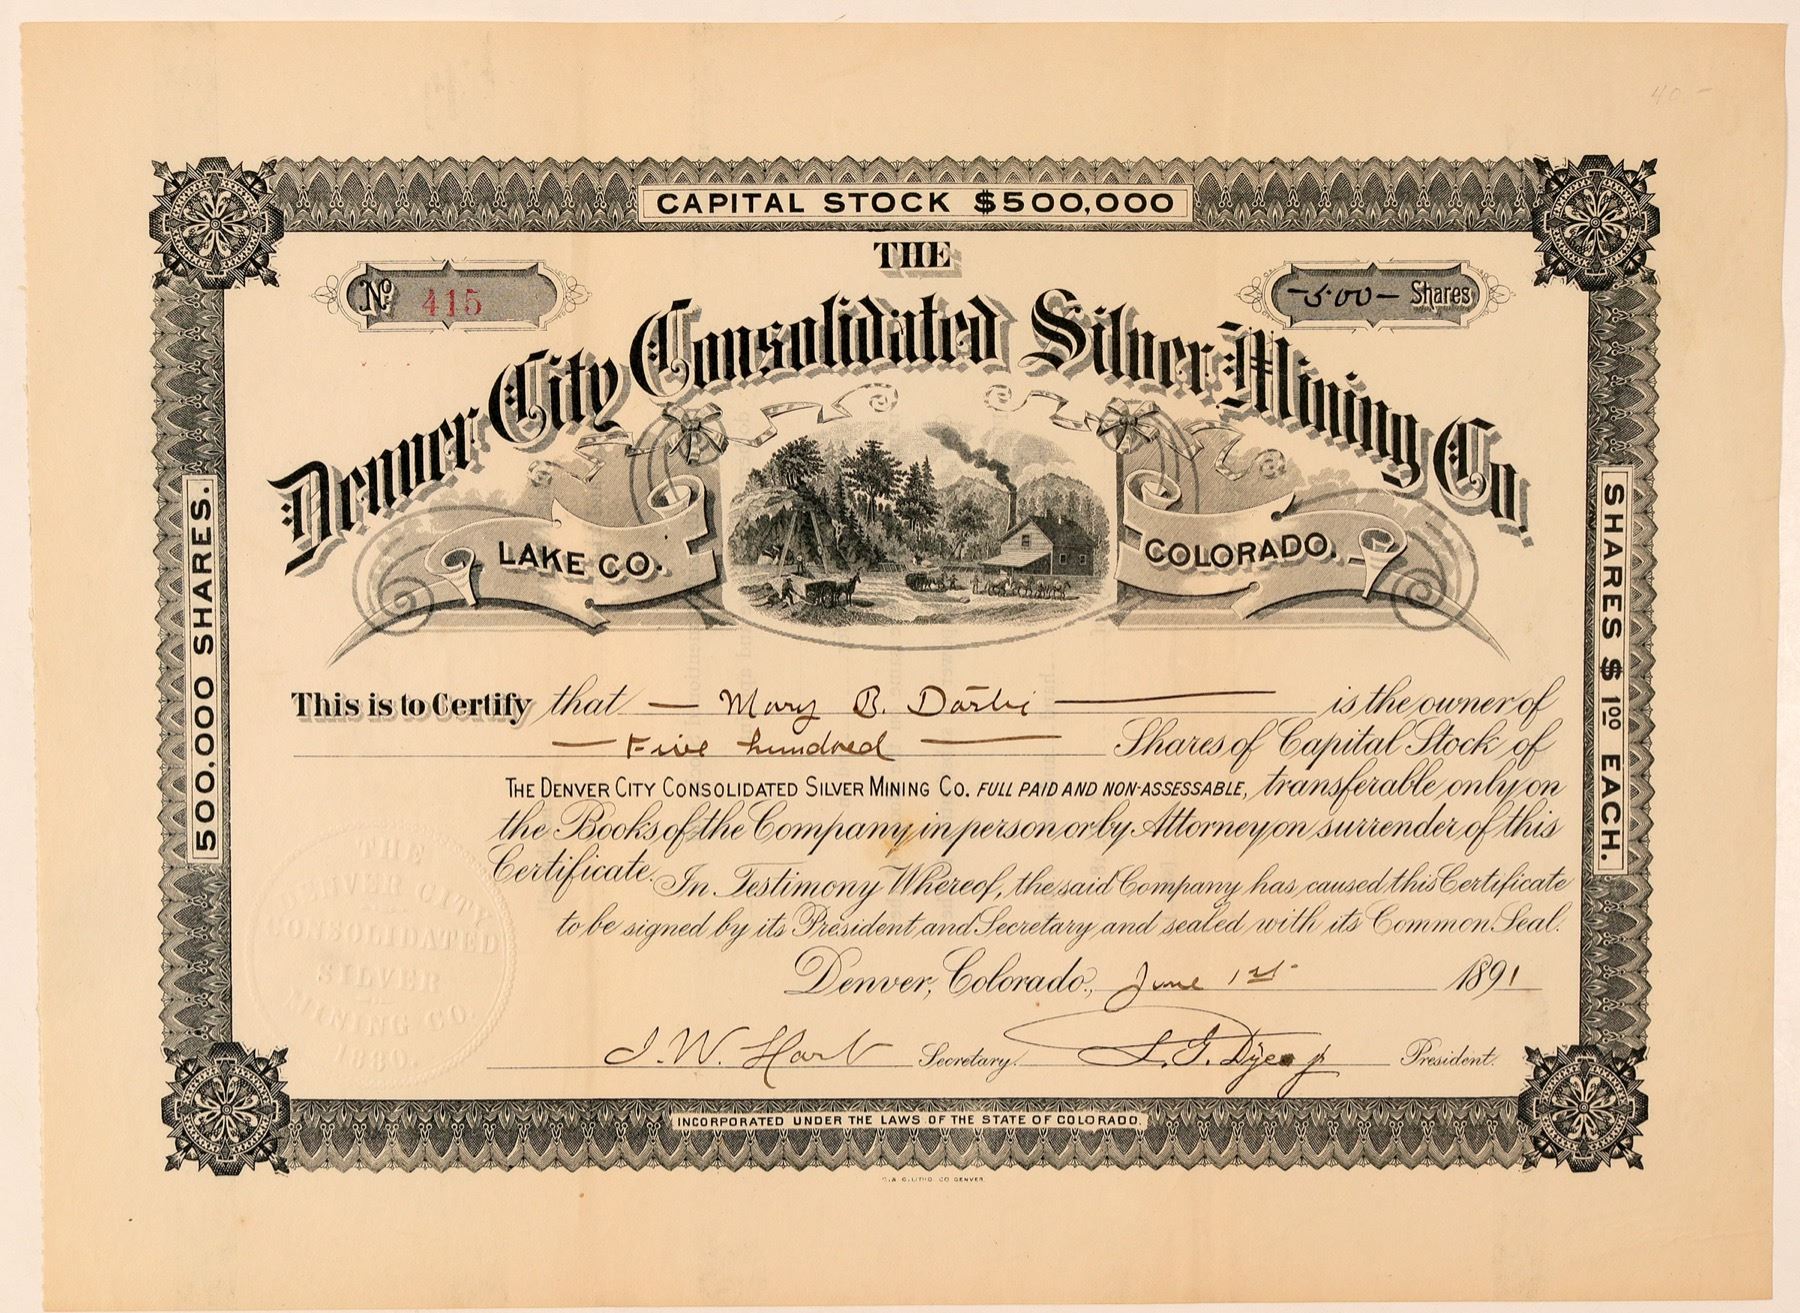 40-
CAPITAL STOCK $500,000
THE
No. 415
-500- Shares
Denver City Consolidated Silver Mining Co.
LAKE CO.
COLORADO.
500,000 SHARES.
SHARES $1.00 EACH.
This is to Certify that — Mary B. — is the owner of
— Five hundred — Shares of Capital Stock of
THE DENVER CITY CONSOLIDATED SILVER MINING CO. FULL PAID AND NON-ASSESSABLE, transferable only on
the Books of the Company in person or by Attorney on surrender of this
Certificate. In Testimony Whereof, the said Company has caused this Certificate
to be signed by its President and Secretary and sealed with its Common Seal.
Denver, Colorado, June 1st 1891
J. W. Hart Secretary. President.
THE
DENVER CITY
CONSOLIDATED
SILVER
MINING CO.
1880.
INCORPORATED UNDER THE LAWS OF THE STATE OF COLORADO.
LITHO. CO DENVER